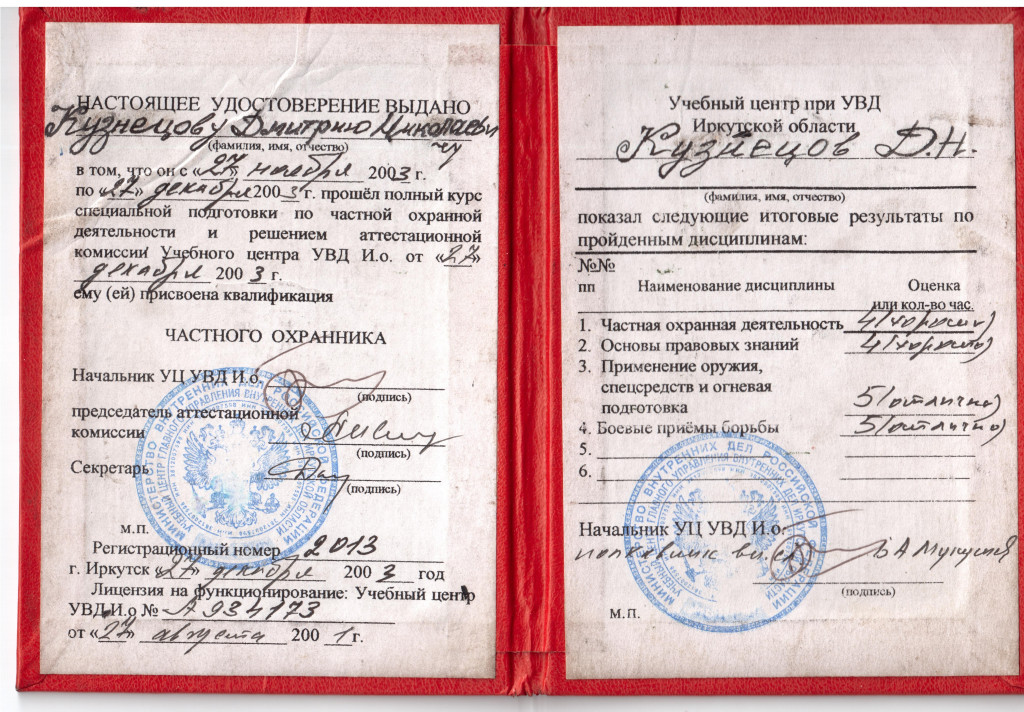 НАСТОЯЩЕЕ УДОСТОВЕРЕНИЕ ВЫДАНО
Кузнецову Дмитрию Николаеви
чу
(фамилия, имя, отчество)
в том, что он с «27» ноября 2003 г.
по «27» декабря 2003 г. прошёл полный курс
специальной подготовки по частной охранной
деятельности и решением аттестационной
комиссии Учебного центра УВД И.о. от «27»
декабря 2003 г.
ему (ей) присвоена квалификация
ЧАСТНОГО ОХРАННИКА
Начальник УЦ УВД И.о.
(подпись)
председатель аттестационной
комиссии
(подпись)
Секретарь
(подпись)
м.п.
Регистрационный номер 2013
г. Иркутск «27» декабря 2003 год
Лицензия на функционирование: Учебный центр
УВД И.о № А 934173
от «27» августа 2001 г.
Учебный центр при УВД
Иркутской области
Кузнецов Д.Н.
(фамилия, имя, отчество)
показал следующие итоговые результаты по
пройденным дисциплинам:
№№
пп Наименование дисциплины Оценка
или кол-во час.
1. Частная охранная деятельность 4(хорошо)
2. Основы правовых знаний 4(хорошо)
3. Применение оружия,
спецсредств и огневая
подготовка 5(отлично)
4. Боевые приёмы борьбы 5(отлично)
5.
6.
Начальник УЦ УВД И.о.
полковник вн.сл.
(подпись)
м.п.